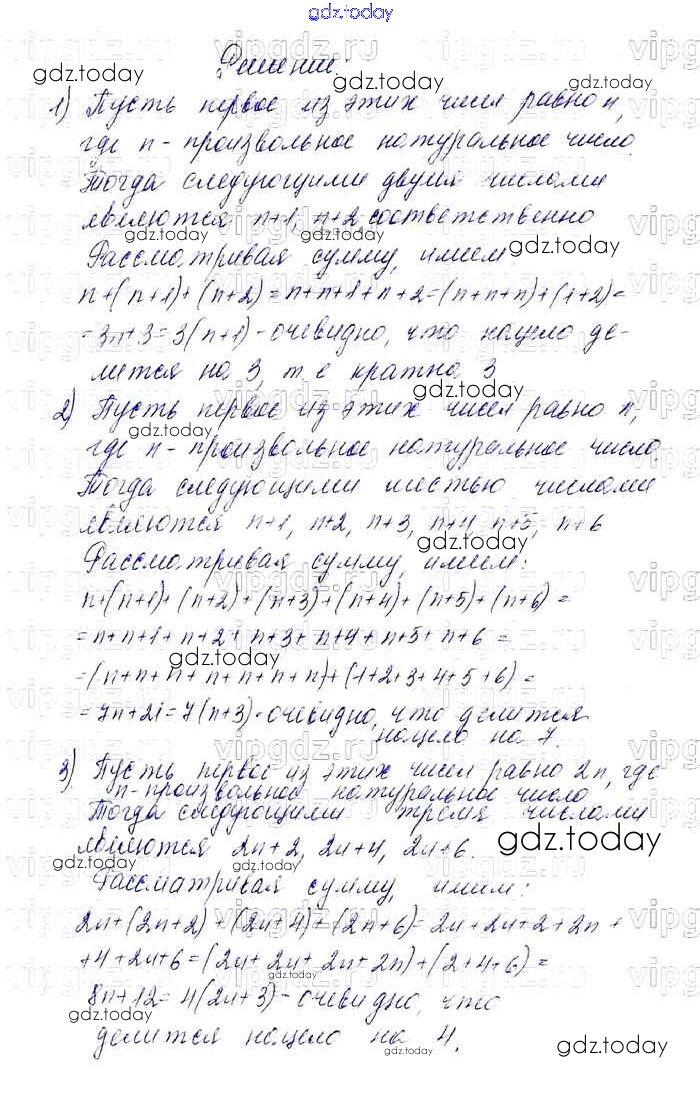 gdz.today
Решение.
1) Пусть первое из этих чисел равно n,
где n - произвольное натуральное число.
Тогда следующими двумя числами
являются n+1, n+2 соответственно
Рассматривая сумму, имеем:
n+(n+1)+(n+2)=n+n+1+n+2=(n+n+n)+(1+2)=
=3n+3=3(n+1) - очевидно, что нацело де-
лится на 3, т.е. кратна 3
2) Пусть первое из этих чисел равно n,
где n - произвольное натуральное число.
Тогда следующими шестью числами
являются n+1, n+2, n+3, n+4, n+5, n+6
Рассматривая сумму, имеем:
n+(n+1)+(n+2)+(n+3)+(n+4)+(n+5)+(n+6)=
=n+n+1+n+2+n+3+n+4+n+5+n+6=
=(n+n+n+n+n+n+n)+(1+2+3+4+5+6)=
=7n+21=7(n+3) - очевидно, что делится
нацело на 7.
3) Пусть первое из этих чисел равно 2n, где
n - произвольное натуральное число
Тогда следующими тремя числами
являются 2n+2, 2n+4, 2n+6.
Рассматривая сумму, имеем:
2n+(2n+2)+(2n+4)+(2n+6)=2n+2n+2+2n+
+4+2n+6=(2n+2n+2n+2n)+(2+4+6)=
8n+12=4(2n+3) - очевидно, что
делится нацело на 4.
gdz.today